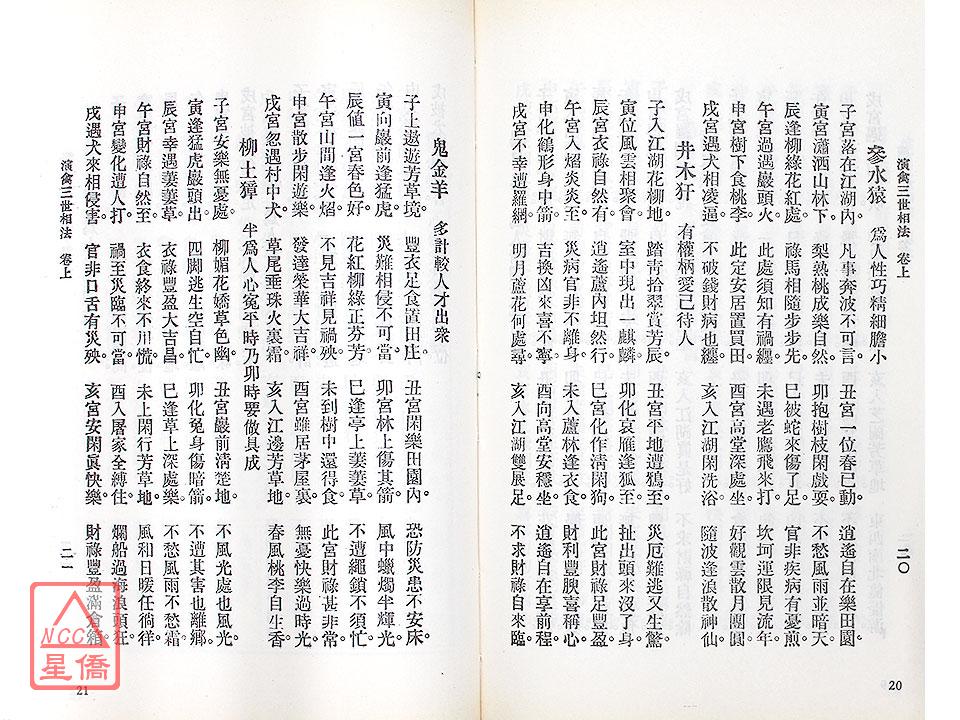 演禽三世相法　卷上
二〇
參水猿　為人性巧精細膽小
子宮落在江湖內　凡事奔波不可言　丑宮一位春已動　逍遙自在樂田園
寅宮瀟洒山林下　梨熟桃成樂自然　卯抱樹枝閑戲耍　不愁風雨並暗天
辰逢柳綠花紅處　祿馬相隨步步先　巳被蛇來傷了足　官非疾病有憂煎
午宮過遇巖頭火　此處須知有禍纏　未遇老鷹飛來打　坎坷運限見流年
申宮樹下食桃李　此定安居置買田　酉宮高堂深處坐　好觀雲散月團圓
戌宮遇犬相凌逼　不破錢財病也纏　亥入江湖閑洗浴　隨波逢浪散神仙
井木犴　有權柄愛已待人
子入江湖花柳地　踏靑拾翠賞芳辰　丑宮平地遭鴉至　災厄難逃又生驚
寅位風雲相聚會　室中現出一麒麟　卯化哀雁逢狐至　扯出頭來沒了身
辰宮衣祿自然有　逍遙蘆內坦然行　巳宮化作淸閑狗　此宮財祿足豐盈
午宮入熖炎炎至　災病官非不離身　未入蘆林逢衣食　財利豐腴喜稱心
申化鶴形身中箭　吉換凶來喜不寧　酉向高堂安穩坐　逍遙自在享前程
戌宮不幸遭羅網　明月蘆花何處尋　亥入江湖雙展足　不求財祿自來臨
20
鬼金羊　多計較人才出衆
子上遨遊芳草境　豐衣足食置田庄　丑宮閑樂田園內　恐防災患不安床
寅向巖前逢猛虎　災難相侵不可當　卯宮林上傷其箭　風中蠟燭半輝光
辰値一宮春色好　花紅柳綠正芬芳　巳逢亭上萋萋草　不遭繩鎖不須忙
午宮山間逢火熖　不見吉祥見禍殃　未到樹中還得食　此宮財祿甚非常
申宮散步閑遊樂　發達榮華大吉祥　酉宮雖居茅屋裏　無憂快樂過時光
戌宮忽遇村中犬　草尾垂珠火裏霜　亥入江邊芳草地　春風桃李自生香
柳土獐　半為人心寃平時乃卯時要做具成
子宮安樂無憂處　柳媚花嬌草色幽　丑宮巖前淸楚地　不風光處也風光
寅逢猛虎巖頭出　四脚逃生空自忙　卯化兔身傷暗箭　不遭其害也離鄉
辰宮幸遇萋萋草　衣祿豐盈大吉昌　巳逢草上深處樂　不愁風雨不愁霜
午宮財祿自然至　衣食終來不用慌　未上閑行芳草地　風和日暖任徜徉
申宮變化遭人打　禍至災臨不可當　酉入屠家全縛住　爛船過海浪頭狂
戌遇犬來相侵害　官非口舌有災殃　亥宮安閑眞快樂　財祿豐盈滿倉箱
演禽三世相法　卷上
二一
21
NCC
星僑